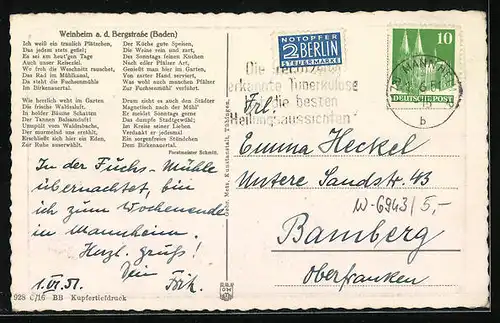 Weinheim a. d. Bergstraße (Baden)
Ich weiß ein traulich Plätzchen,
Das jedem stets gefiel;
Es sei am heut'gen Tage
Auch unser Reiseziel.
Wo froh die Weschnitz rauschet,
Das Rad im Mühlkanal,
Da steht die Fuchsenmühle
Im Birkenauertal.
Wie herrlich wirkt im Garten
Die frische Waldesluft,
In holder Bäume Schatten
Der Tannen Balsamduft!
Umspült vom Waldesbache,
Der murmelnd uns erzählt,
Erschließt sich hier ein Eden,
Zur Ruhe auserwählt.
Der Küche gute Speisen,
Die Weine rein und zart,
Des Sonntags feinen Kuchen
Nach edler Pfälzer Art,
Genießt man hier im Garten,
Von zarter Hand serviert,
Was wohl auch manchen Pfälzer
Zur Fuchsenmühl' verführt.
Drum zieht es auch den Städter
Magnetisch nach der Mühl'
Er meidet Sonntags gerne
Das dumpfe Stadtgewühl;
Im Kreise seiner Lieben
Verdankt er jedesmal
Ein sorgenfreies Stündchen
Dem Birkenauertal.
Forstmeister Schmitt.
In der Fuchs-Mühle
übernachtet, bin
ich zum Wochenende
in Mannheim.
Herzl. Gruß!
Dein
1.VI.51.
928 C/16 BB Kupfertiefdruck
Gebr. Metz, Kunstanstalt, Tübingen
NOTOPFER
2 BERLIN
STEUERMARKE
10
DEUTSCHE POST
MANNHEIM
b
Die
erkannte Tuberkulose
die besten
Heilungsaussichten
Frl.
Emma Heckel
Untere Sandstr. 43
W-6943/5,-
Bamberg
Oberfranken